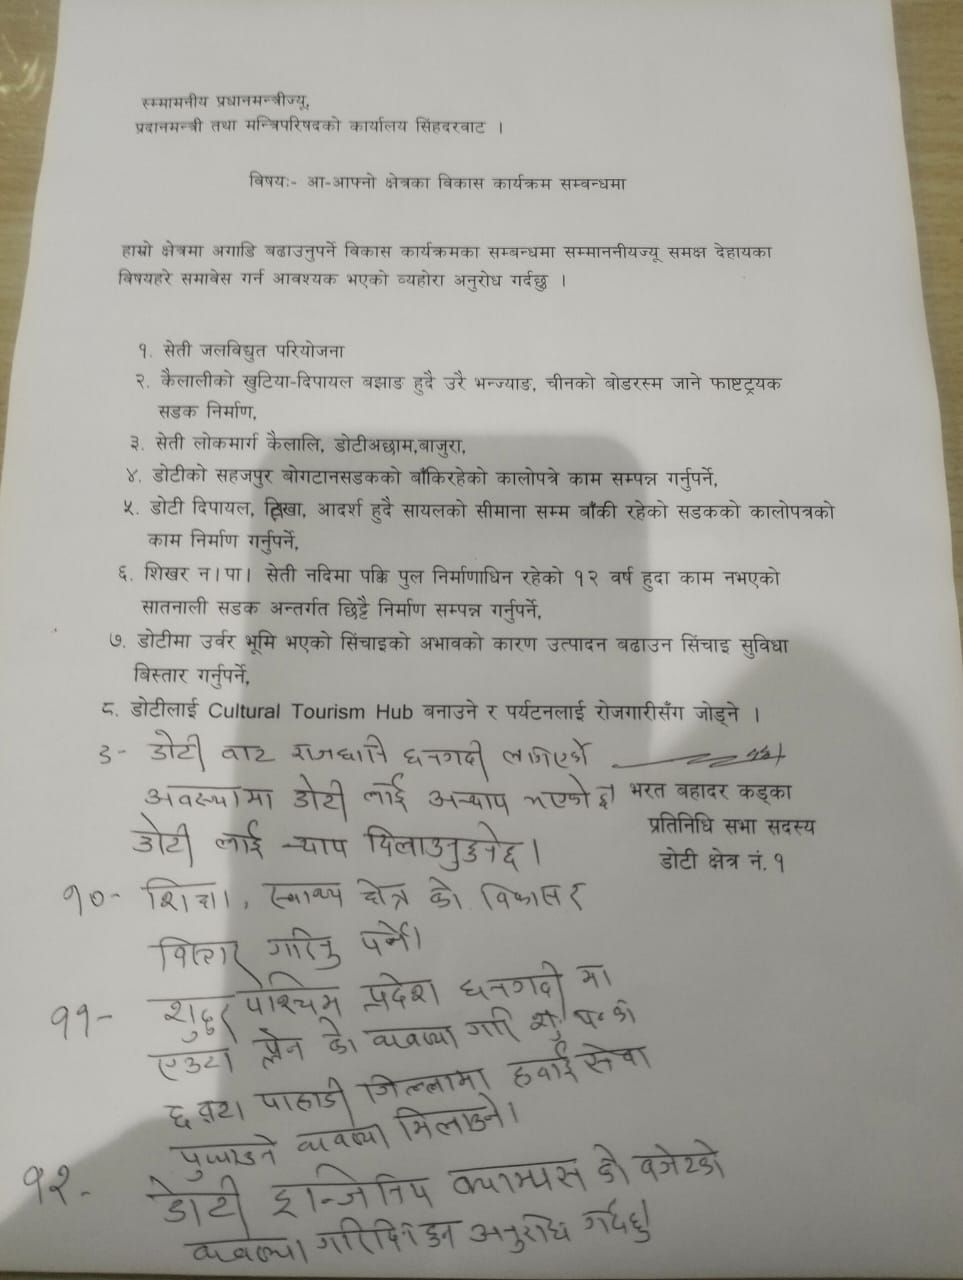 स्म्मामनीय प्रधानमन्त्रीज्यू,
प्रदानमन्त्री तथा मन्त्रिपरिषदको कार्यालय सिंहदरवाट ।
विषयः- आ-आफ्नो क्षेत्रका विकास कार्यक्रम सम्वन्धमा
हाम्रो क्षेत्रमा अगाडि बढाउनुपर्ने विकास कार्यक्रमका सम्बन्धमा सम्माननीयज्यू समक्ष देहायका
बिषयहरे समावेस गर्न आवश्यक भएको व्यहोरा अनुरोध गर्दछु ।
१. सेती जलविद्युत परियोजना
२. कैलालीको खुटिया-दिपायल बझाङ हुदै उरै भन्ज्याङ, चीनको बोडरस्म जाने फाष्टट्रयक
सडक निर्माण,
३. सेती लोकमार्ग कैलालि, डोटीअछाम,बाजुरा,
४. डोटीको सहजपुर बोगटानसडकको बाँकिरहेको कालोपत्रे काम सम्पन्न गर्नुपर्ने,
५. डोटी दिपायल, लिखा, आदर्श हुदै सायलको सीमाना सम्म बाँकी रहेको सडकको कालोपत्रको
काम निर्माण गर्नुपर्ने,
६. शिखर न।पा। सेती नदिमा पक्कि पुल निर्माणाधिन रहेको १२ वर्ष हुदा काम नभएको
सातनाली सडक अन्तर्गत छिट्टै निर्माण सम्पन्न गर्नुपर्ने,
७. डोटीमा उर्वर भूमि भएको सिंचाइको अभावको कारण उत्पादन बढाउन सिंचाइ सुविधा
बिस्तार गर्नुपर्ने,
८. डोटीलाई Cultural Tourism Hub बनाउने र पर्यटनलाई रोजगारीसँग जोड्ने ।
९- डोटी वाट राजधानि धनगढी लगिएको
अवस्थामा डोटी लाई अन्याय भएको छ। भरत बहादर कड्का
डोटी लाई न्याय दिलाउनुहुनेछ। प्रतिनिधि सभा सदस्य
डोटी क्षेत्र नं. १
१०- शिक्षा, स्वास्थ्य क्षेत्र को विकास र
विस्तार गरिनु पर्ने।
११- शुदुर पश्चिम प्रदेश धनगढी मा
एउटा प्लेन को व्यवस्था गरि शु. प. को
६ वटा पाहाडी जिल्लामा हवाई सेवा
पुर्‍याउने व्यवस्था मिलाउने।
१२- डोटी इन्जिनिय क्याम्पस को बजेटको
व्यवस्था गरिदिनहुन अनुरोध गर्दछु।